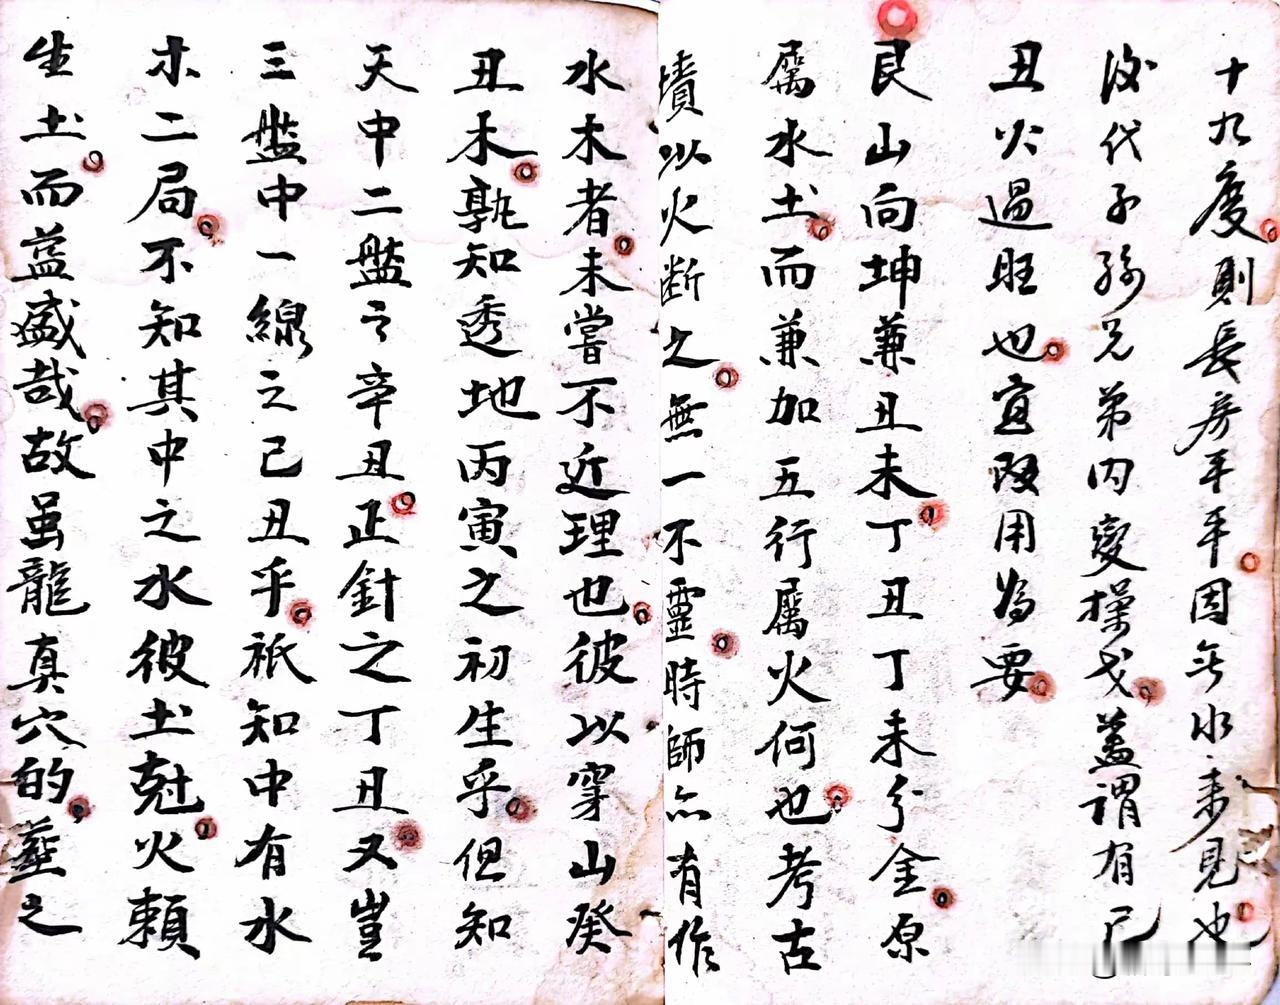 十九度則長房平平因無水來見也
後代子孫兄弟內變操戈蓋謂有己
丑火過旺也宜改用為要
艮山向坤兼丑未丁丑丁未分金原
屬水土而兼加五行屬火何也考古
墳以火斷之無一不靈時師亦有作
水木者未嘗不近理也彼以穿山癸
丑木孰知透地丙寅之初生乎但知
天中二盤之辛丑正針之丁丑又豈
三盤中一線之己丑乎祇知中有水
木二局不知其中之水彼土尅火賴
生土而益盛哉故虽龍真穴的葬之